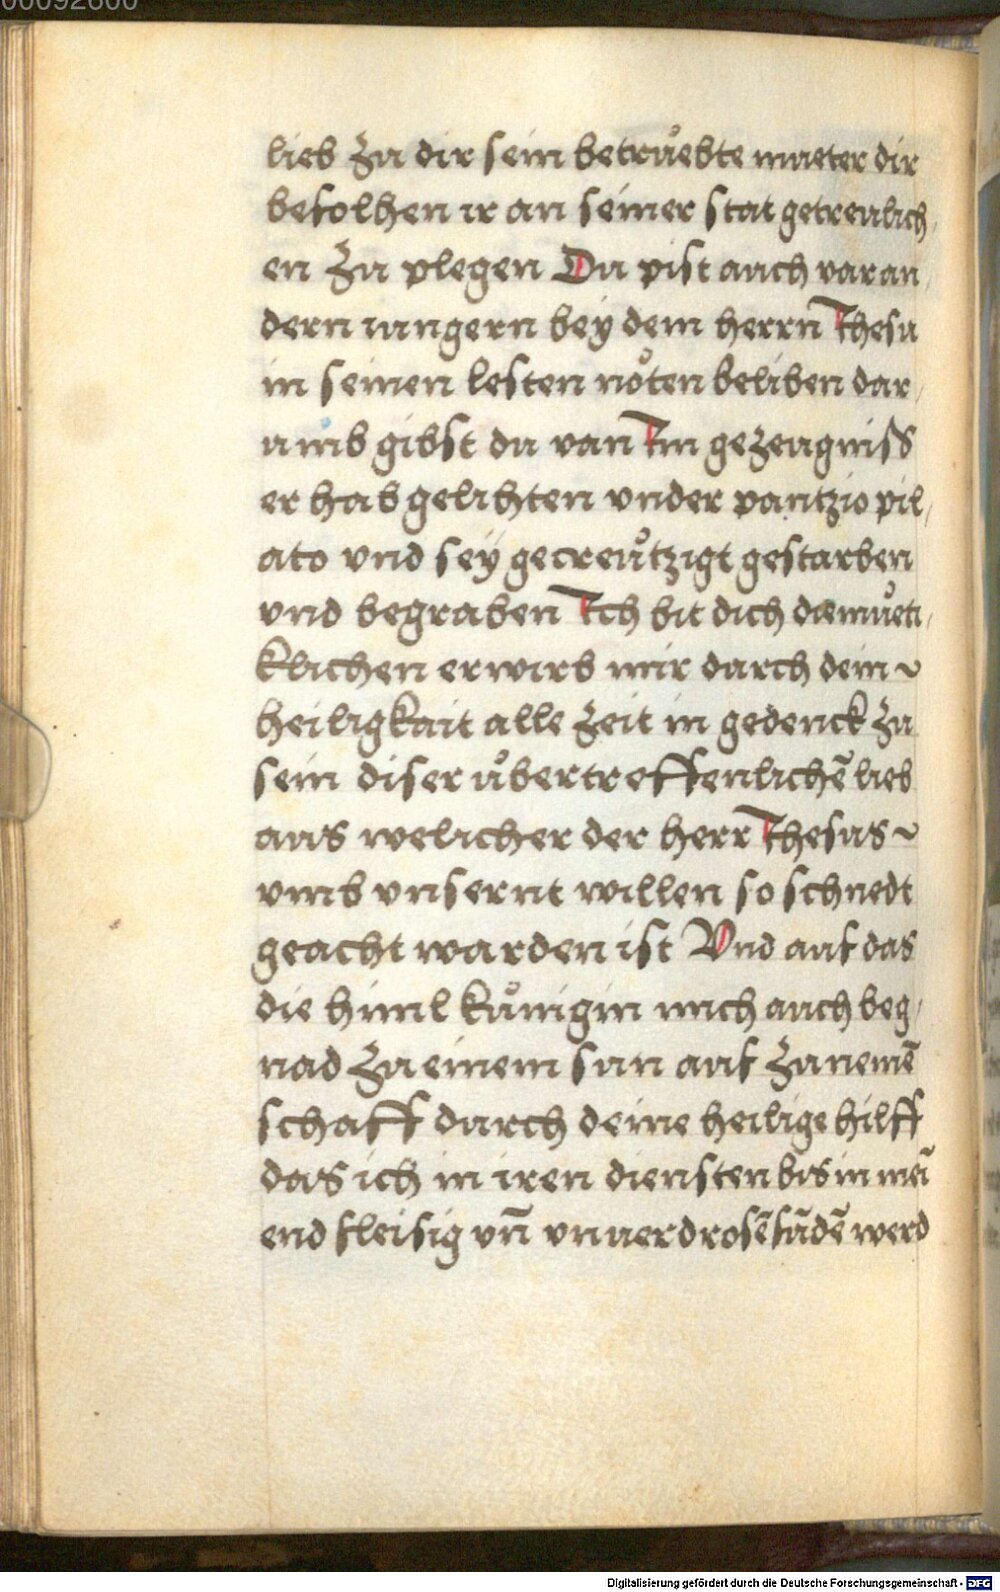 00092600
lieb zu dir sein betruͦebte mueter dir
befolhen ir an seiner stat getreulich,
en zu plegen Du pist auch var an,
dern iungern bey dem herrn Ihesu
in seinen lesten noͤten beliben dar,
umb gibst du van Im gezeugniss
er hab gelihten vnder pontzio pil,
ato vnd sey gecreuͦtzigt gestarben
vnd begraben Ich bit dich diemuͦeti,
klichen erwirb mir durch dein ~
heiligkait alle zeit in gedenck zu
sein diser uͦbertreffenlichē lieb
aus welicher der herr Ihesus ~
vmb vnsernt willen so schnedt
geacht warden ist Vnd auf das
die himl kuͦnigin mich auch beg,
nad zu einem sun auf zunemē
schaff durch deine heilige hilff
das ich in iren diensten bis in mei̅
end fleisig vn̄ vnuerdrosē fūdē werd
Digitalisierung gefördert durch die Deutsche Forschungsgemeinschaft - DFG